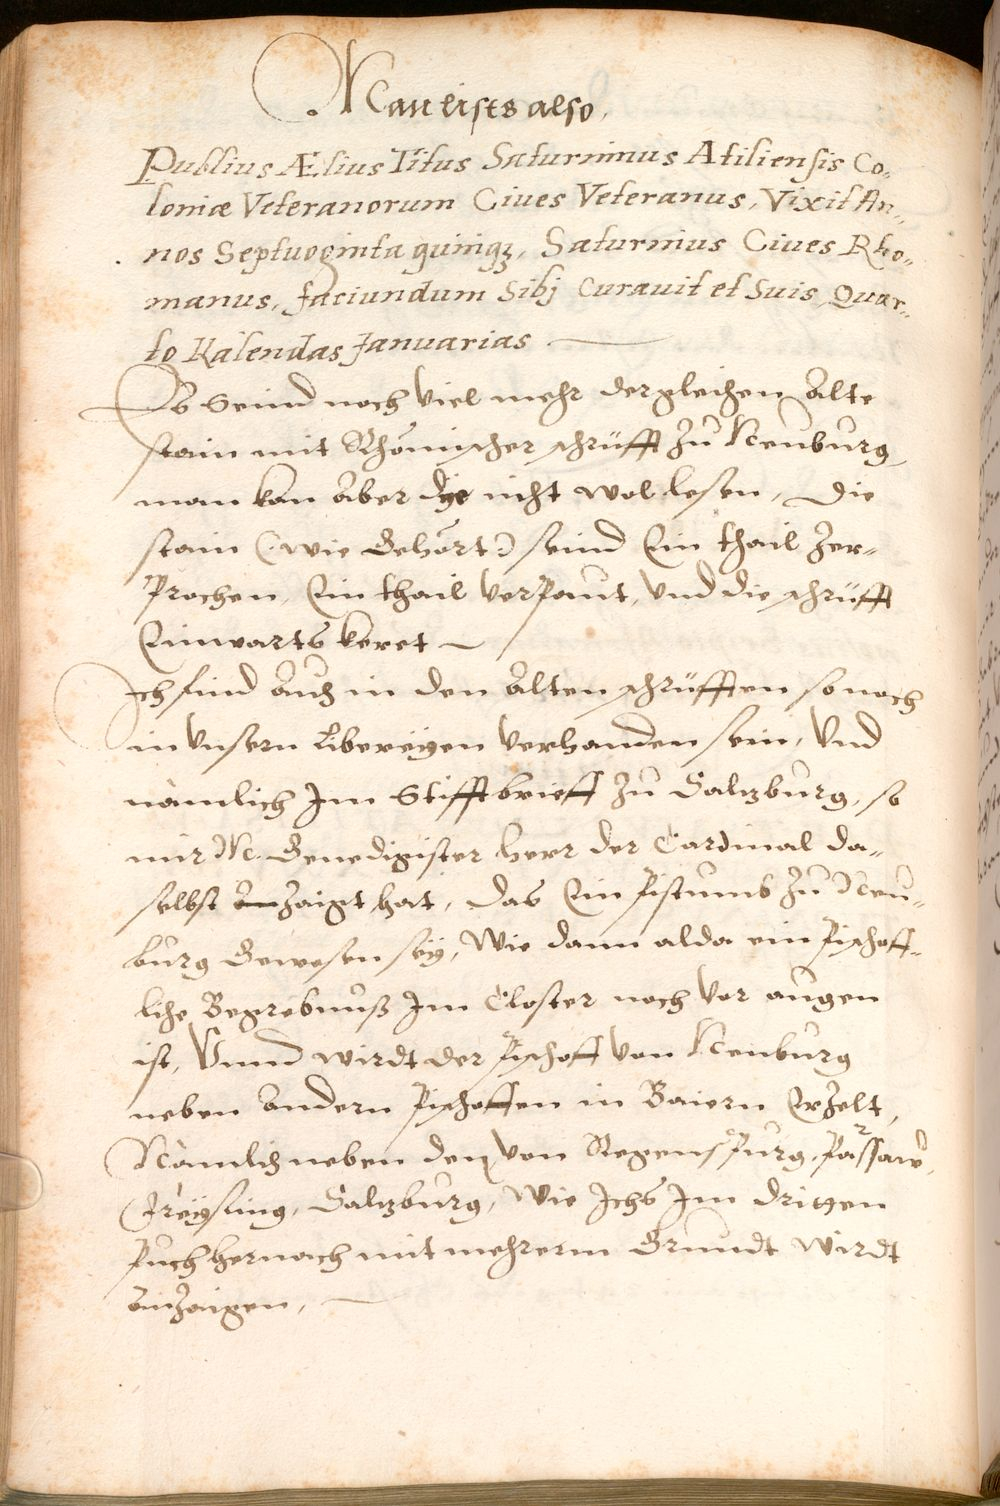 Man lists also,
Publius Ælius Titus Saturninus Atiliensis Co„
loniæ Veteranorum Ciues Veteranus, Vixit An„
nos Septuoginta quinqꝫ, Saturnius Ciues Rho„
manus, faciundum Sibj Curauit et Suis, Quar„
to Kalendas Januarias
Es Seind noch Viel mehr dergleichen Alte
stain mit Rhömischer schrüfft Zu Neuburg,
man kan Aber dÿe nicht wol lesen, Die
stain (: wie Gehört :) seind Ein thail Zer„
Prochen, Ein thail VerPaut, Vnd die schrüfft
Einwarts keret
Ich find Auch in den Alten schrüfften so noch
in Vnsern Libereÿen Verhanden sein, Vnd
nämlich Im Stifftbrieff Zu Saltzburg, so
mir N. Genedigister herr der Cardinal da„
selbst anZaigt hat, Das Ein Pistumb Zu Neu„
burg Gewesen seÿ, Wie dann alda ein Pischoff„
liche Begrebnuß Im Closter noch Vor augen
ist, Vnnd wirdt der Pischoff Von Neuburg
neben Andern Pischoffen in Baiern ErZelt,
Nämlich neben den Von RegensPurg, Passaw,
Freÿsing, Saltzburg, Wie Ichs Im dritten
Puch hernach mit mehrerm Grundt wirdt
AnZaigen,